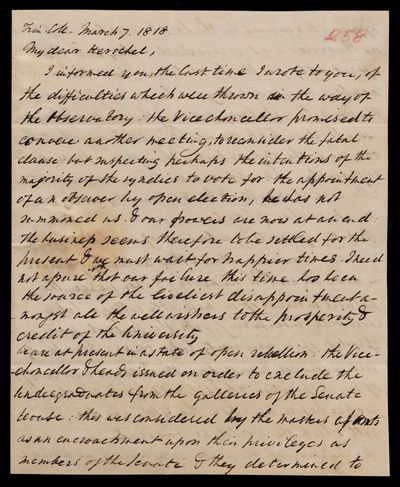 Trin Coll. March 7. 1818.
258
My dear Herschel,
I informed you, the last time I wrote to you, of
the difficulties which were thrown in the way of
the Observatory: the Vicechancellor promised to
convene another meeting, to reconsider the fatal
clause: but suspecting perhaps the intentions of the
majority of the syndics to vote for the appointment
of an observer by open election, he has not
summoned us. & our powers are now at an end:
the business seems therefore to be settled for the
present & we must wait for happier times. I need
not assure you that our failure this time has been
the source of the liveliest disappointment a-
mongst all the well wishers to the prosperity &
credit of the University
We are at present in a state of open rebellion: the Vice-
chancellor & heads issued an order to exclude the
Undergraduates from the galleries of the Senate
house: this was considered by the masters of arts
as an encroachment upon their privileges as
members of the Senate & they determined to